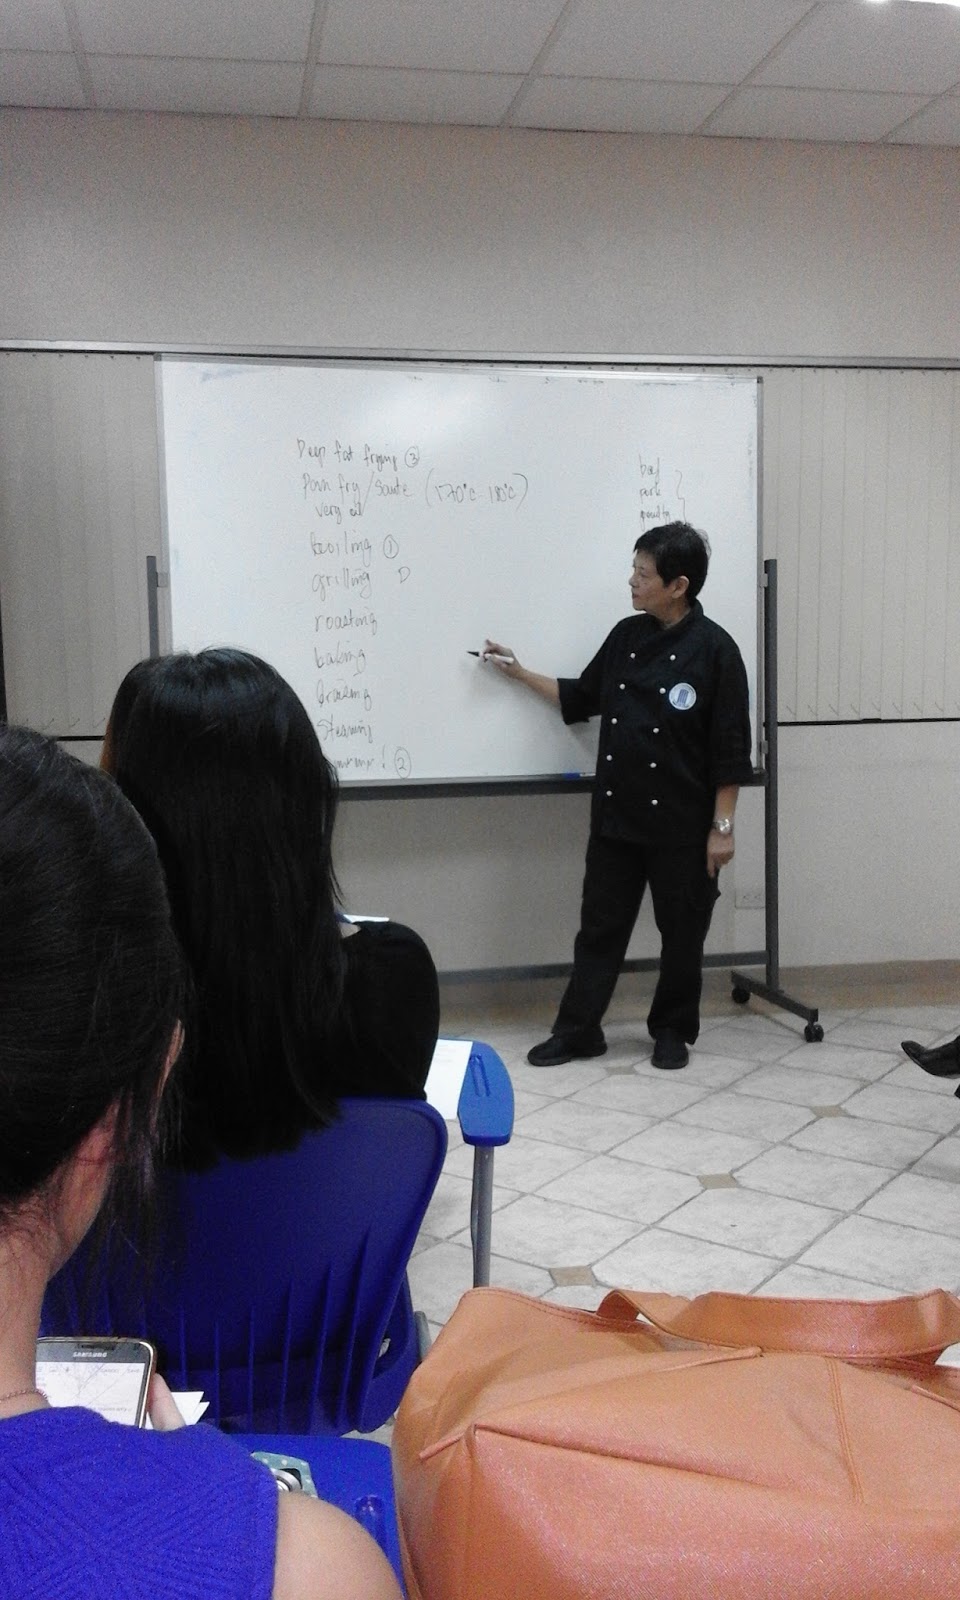 Deep fat frying ③
Pan fry / Saute (170°C - 180°C)
very
boiling ①
grilling D
roasting
baking
braising
steaming
②
beef
pork
poultry
SAMSUNG